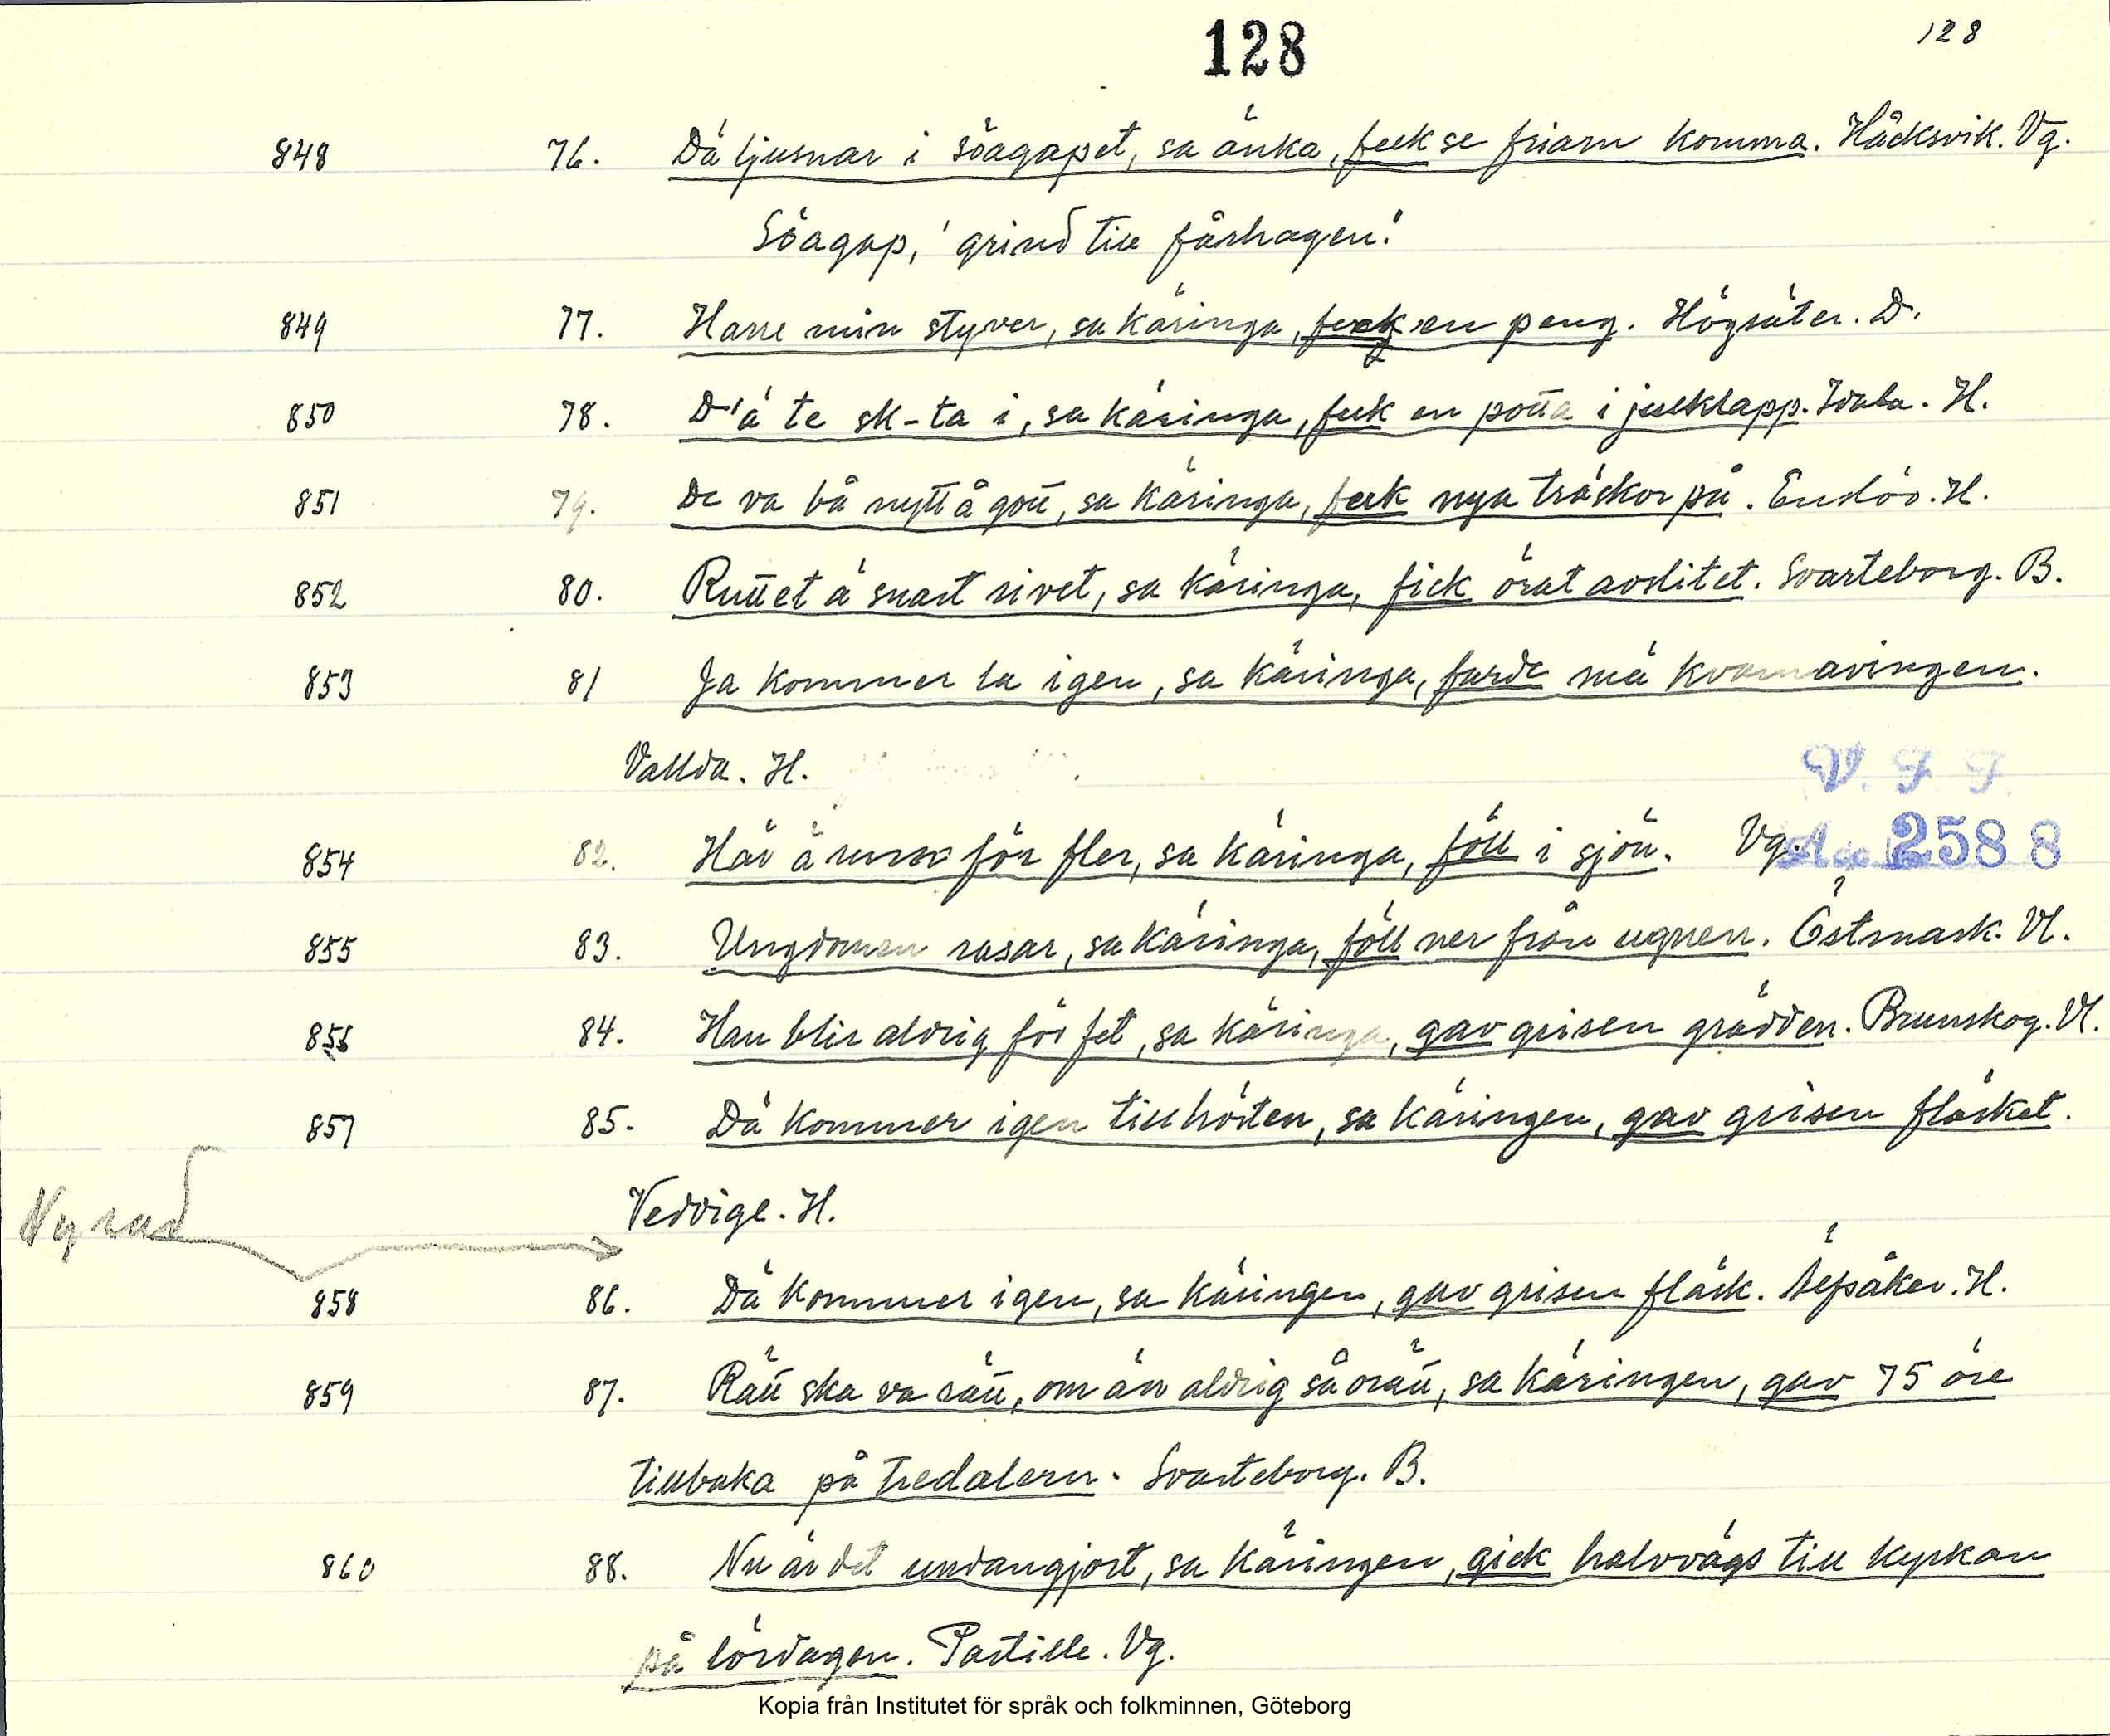 128
128
848 76. Dä ljusnar i söagapet, sa änka, feck se friarn komma. Håcksvik. Vg.
Söagap, 'grind till fårhagen.'
849 77. Harre min styver, sa käringa, feck en peng. Högsäter. D.
850 78. D'ä te sk-ta i, sa käringa, feck en potta i julklapp. Idala. H.
851 79. De va bå nytt å gott, sa käringa, feck nya träskor på. Enslöv. H.
852 80. Ruttet ä snart rivet, sa käringa, fick örat avslitet. Svarteborg. B.
853 81 Ja kommer la igen, sa käringa, farde mä kvarnavingen.
Vallda. H.
V. F. F.
854 82. Här ä rum för fler, sa käringa, föll i sjön. Vg.
Acc 2588
855 83. Ungdomen rasar, sa käringa, föll ner från ugnen. Östmark. Vl.
856 84. Han blir aldrig för fet, sa käringa, gav grisen grädden. Brunskog. Vl.
857 85. Dä kommer igen till hösten, sa käringen, gav grisen fläsket.
Veddige. H.
Ny rad
858 86. Dä kommer igen, sa käringen, gav grisen fläsk. H.
859 87. Rätt ska va rätt, om än aldrig så orätt, sa käringen, gav 75 öre
tillbaka på tredalern. Svarteborg. B.
860 88. Nu är det undangjort, sa käringen, gick halvvägs till kyrkan
på lördagen. Partille. Vg.
Kopia från Institutet för språk och folkminnen, Göteborg